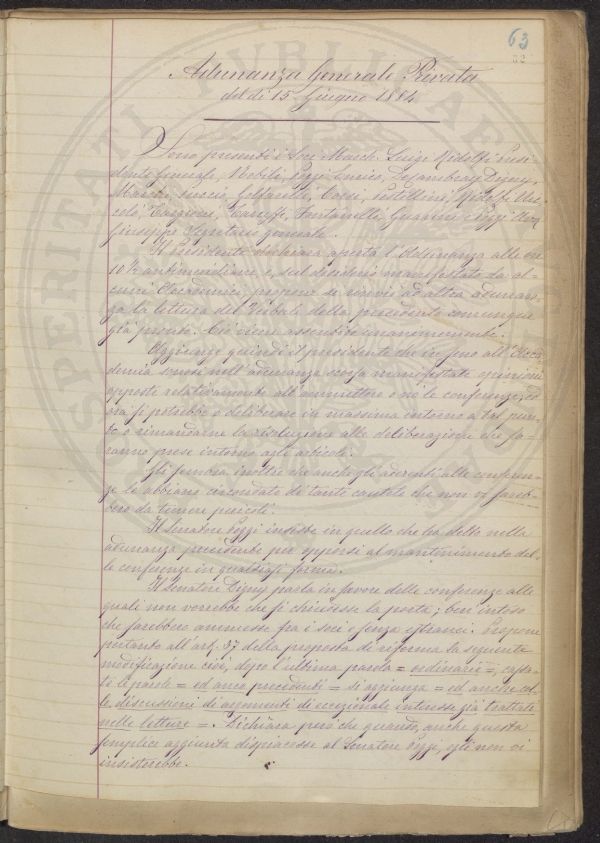 63
Adunanza Generale Privata
del dì 15 Giugno 1884
Sono presenti i Soci March. Luigi Ridolfi Presi-
dente Generale, Nobili, Poggi Enrico, Digny,
Marchi, Luscio, Gotti, Corsi, Pestellini, Ridolfi Nic-
colò, Carega, Fontanelli, Guarini e Poggi
Giuseppe Segretario generale.
Il Presidente dichiara aperta l'Adunanza alle ore
10 ½ antimeridiane e, sul desiderio manifestato da al-
cuni Accademici, propone si rinvii ad altra adunan-
za la lettura del Verbale della precedente comunque
già pronto. Ciò viene assentito unanimemente.
Aggiunge quindi il presidente che in seno all'Acca-
demia sonosi nell'adunanza scorsa manifestate opinioni
opposte relativamente all'ammettere o no le conferenze ed
ora si potrebbe o deliberare in massima intorno a tal pun-
to o rimandarne la risoluzione alle deliberazioni che sa-
ranno prese intorno agli articoli.
Gli sembra inoltre che anche gli aderenti alle conferen-
ze le abbiano circondate di tante cautele che non vi sareb-
bero da temere pericoli.
Il Senatore Poggi insiste in quello che ha detto nella
adunanza precedente per opporsi al mantenimento del-
le conferenze in qualsiasi forma.
Il Senatore Digny parla in favore delle conferenze alle
quali non vorrebbe che si chiudesse la porta; ben inteso
che sarebbero ammesse fra i soci e senza estranei. Propone
pertanto all'art. 37 della proposta di riforma la seguente
modificazione cioè, dopo l'ultima parola = ordinarie =, cassa-
te le parole = ed anco precedenti = si aggiunga = ed anche al-
le discussioni di argomenti di eccezionale interesse già trattati
nelle letture =. Dichiara però che quando, anche questa
semplice aggiunta dispiacesse al Senatore Poggi, egli non vi
insisterebbe.